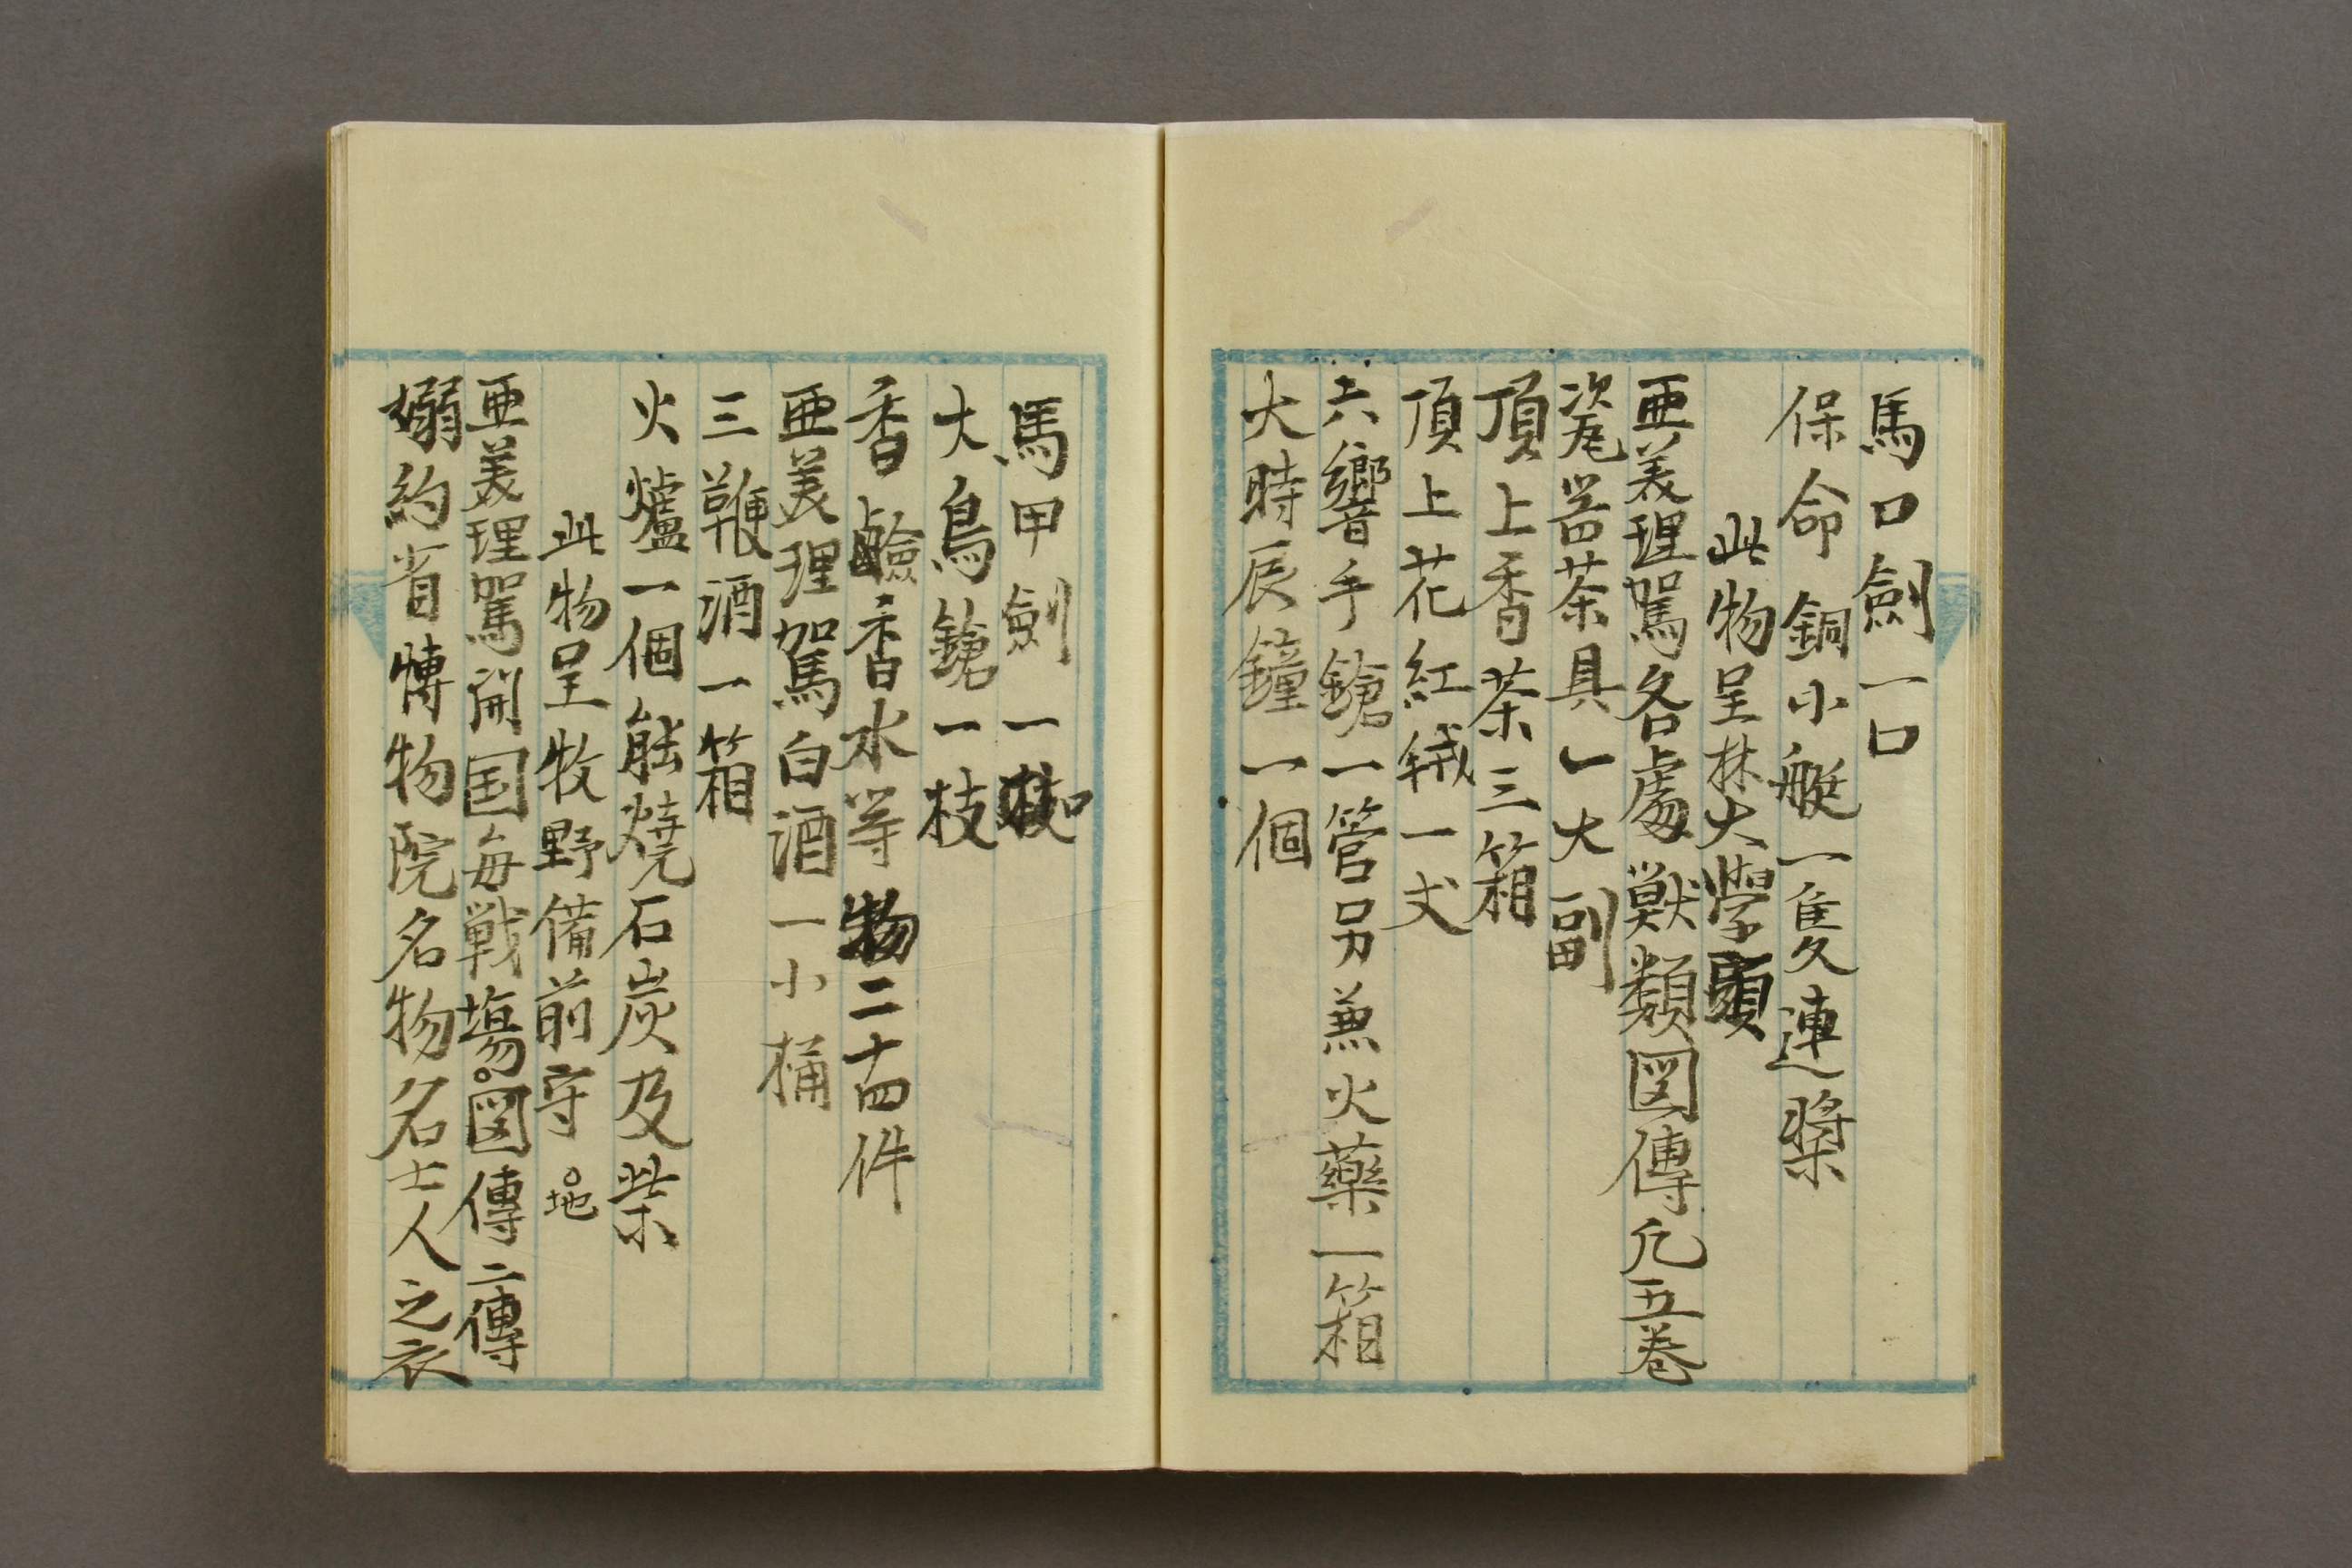 馬口劍一口
保命銅小艇一隻連槳
此物呈林大學頭
亜美理駕各處獣類図傳凢五巻
瓷噐茶具一大副
頂上香茶三箱
頂上花紅絨一丈
六響手鎗一管另兼火藥一箱
大時辰鐘一個
馬甲劍一
大鳥鎗一枝
香鹼香水等物二十四件
亜美理駕白酒一小桶
三鞭酒一箱
火爐一個能燒石炭及柴
此物呈牧野備前守。地
亜美理駕開国毎戦場。図傳二傳
嫋約省博物院名物名士人之衣